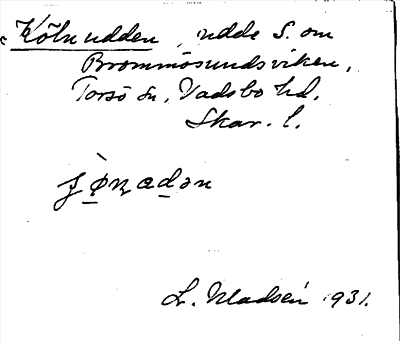 Kölnudden, udde S. om
Brommösundsviken,
Torsö sn, Vadsbo hd,
Skar. l.
L. Madsén 1931.